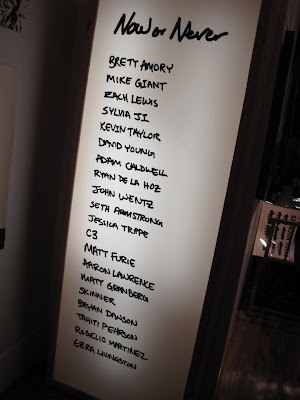 Now or Never
BRETT AMORY
MIKE GIANT
ZACH LEWIS
SYLVIA JI
KEVIN TAYLOR
DAVID YOUNG
ADAM CALDWELL
RYAN DE LA HOZ
JOHN WENTZ
SETH ARMSTRONG
JESSICA TRAPE
C3
MATT FURIE
AARON LAWRENCE
MATT GRANBERG
SKINNER
BRYAN DAWSON
TAHITI PEHRSON
ROGELIO MARTINEZ
EZRA LIVINGSTON